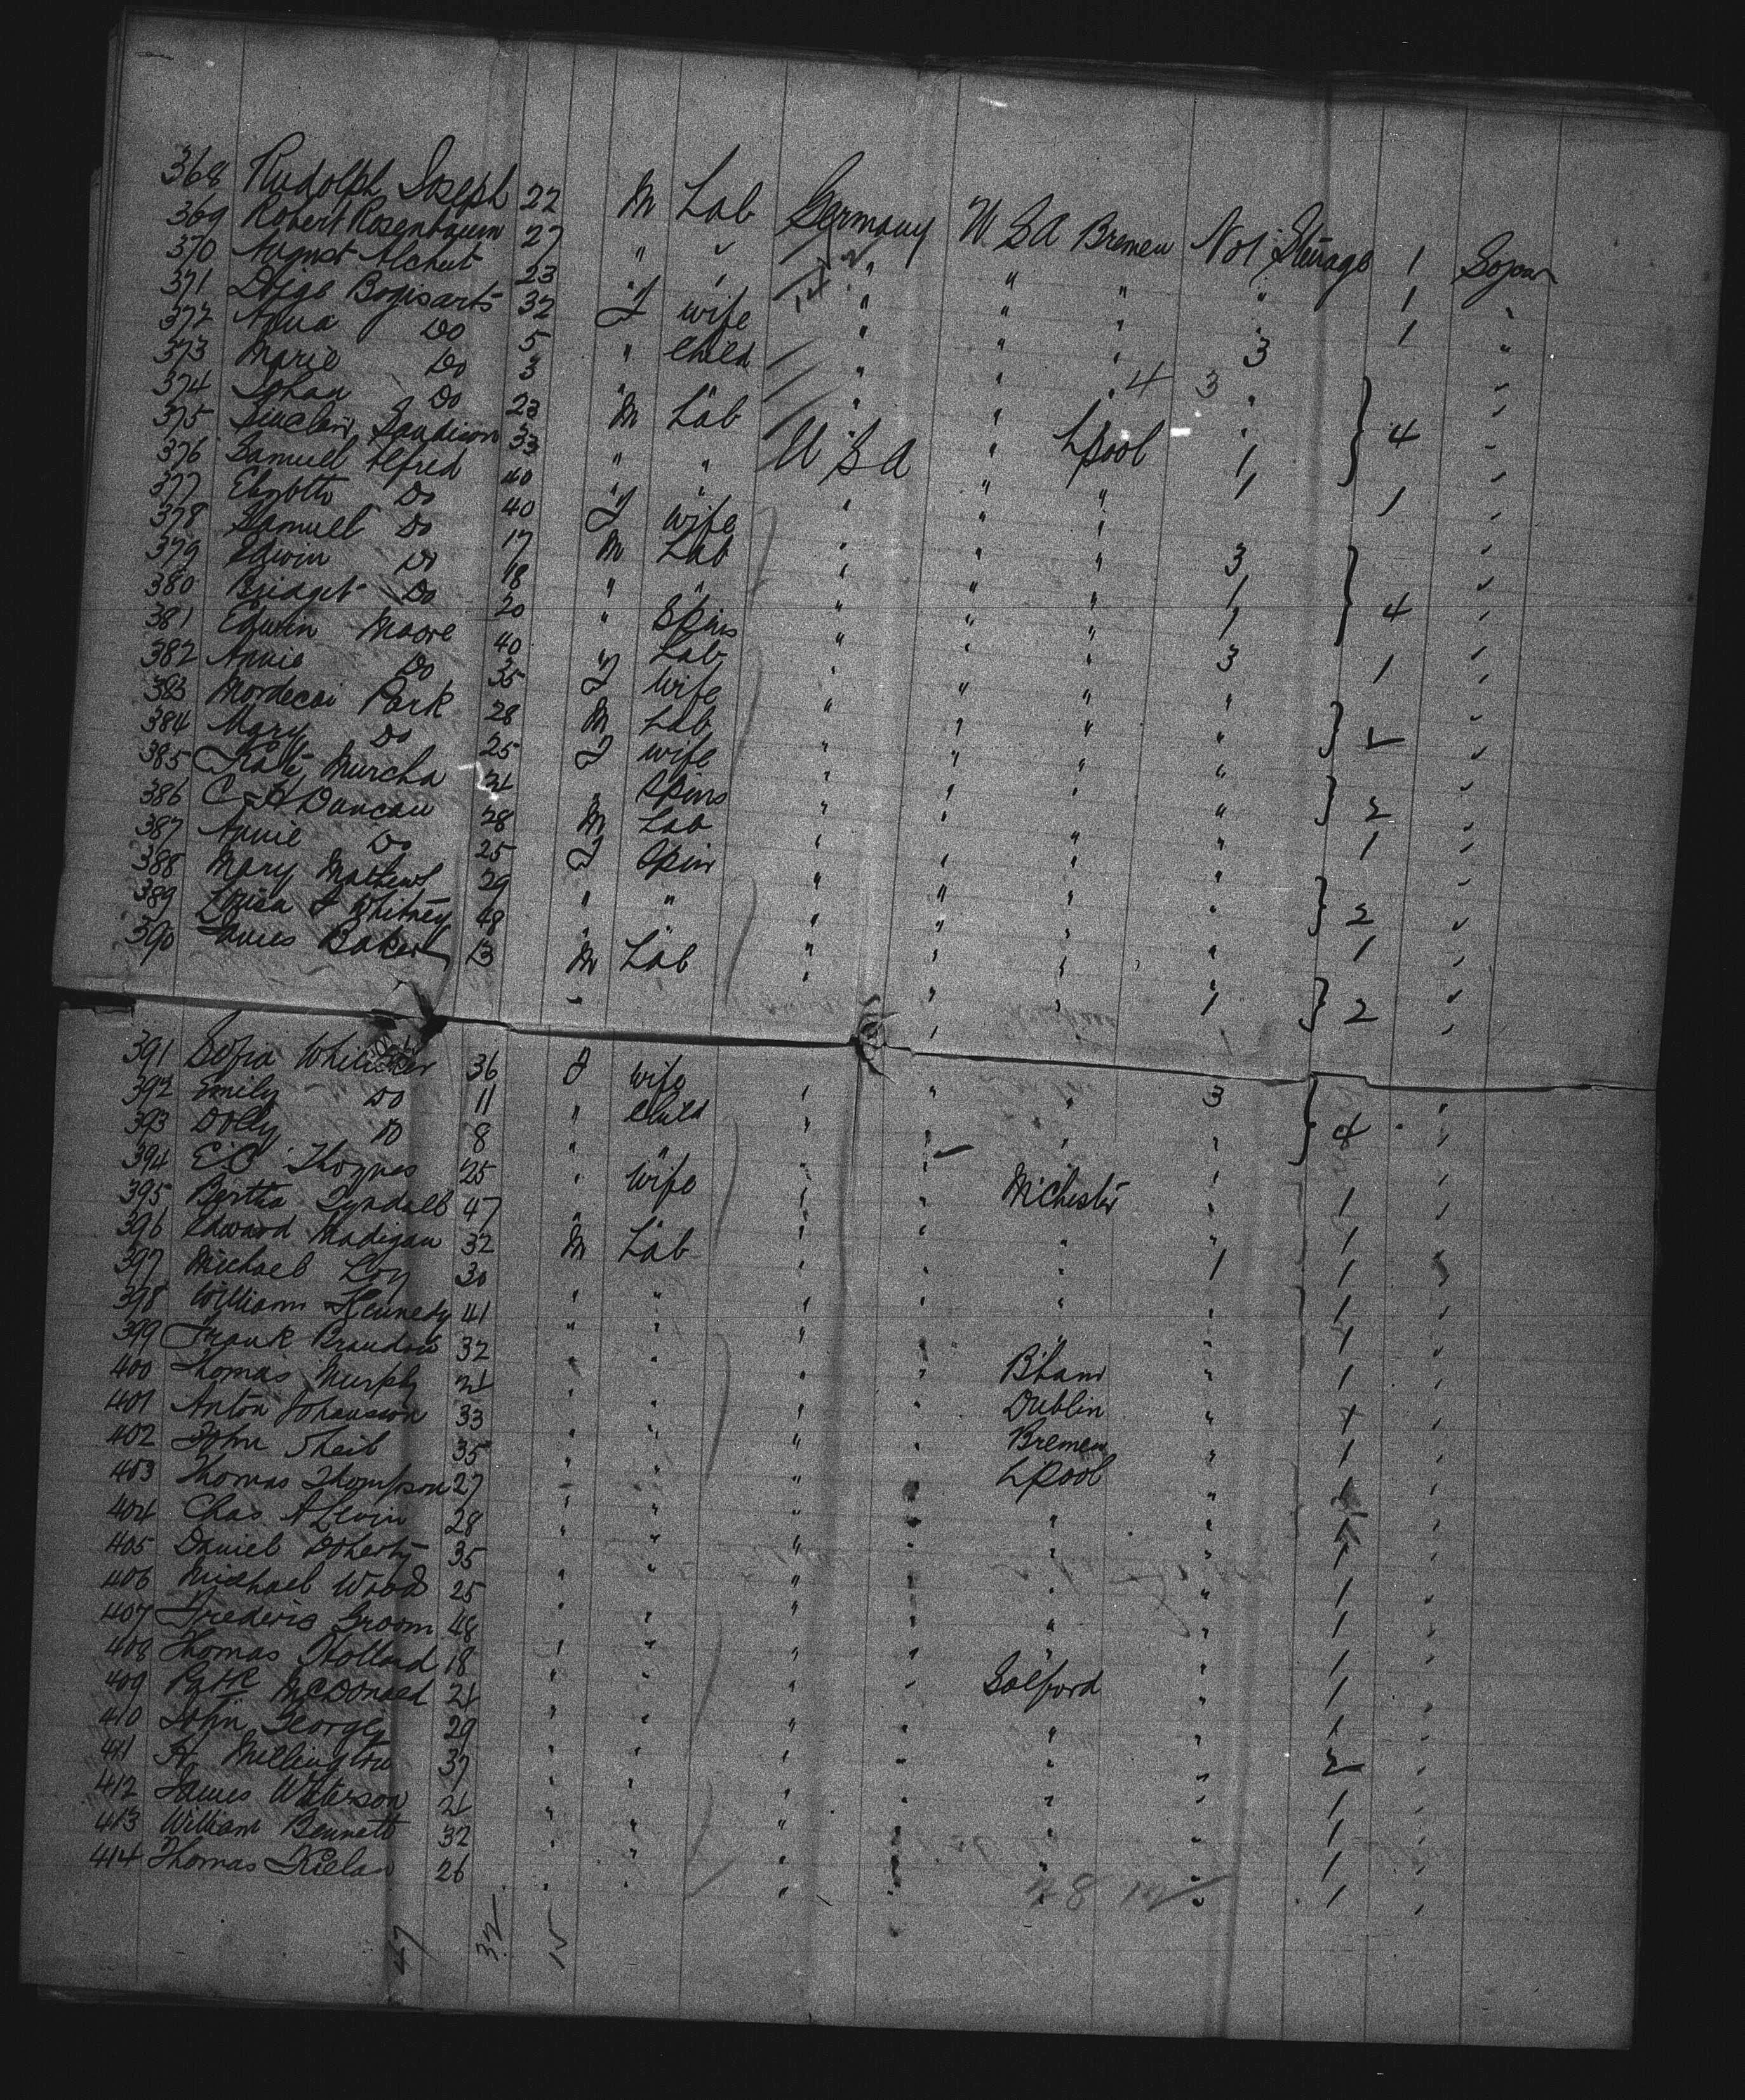 368 Rudolph Joseph 22 M Lab Germany U.S.A Bremen No 1 Steerage 1 Sojour
369 Robert Rosenbaum 27 " " " " " " 1 "
370 August 23 " " " " " " 1 "
371 32 F wife " " " 3 "
372 Anna Do 5 " Child " " " "
373 Marie Do 3 " " " " 4 3 " "
374 Johan Do 23 M Lab " " " " } 4 "
375 Sinclair Sandison 33 " " U.S.A " Lpool 1 1 "
376 Samuel Alfred 40 " " " " " 1 "
377 Do 40 F wife " " " 3 "
378 Samuel Do 17 M Lab " " " 1 } 4 "
379 Edwin Do 18 " " " " " 1 "
380 Bridget Do 20 " Spins " " " 3 1 "
381 Edwin Moore 40 " Lab " " " " "
382 Annie Do 35 F Wife " " " " } 2 "
383 Mordecai Park 28 M Lab " " " " "
384 Mary Do 25 F wife " " " " } 2 "
385 Kate Murcha 21 " Spins " " " " 1 "
386 C H Duncan 28 M Lab " " " " "
387 Annie Do 25 F Spin " " " " } 2 "
388 Mary Mathews 29 " " " " " " 1 "
389 Louisa J Whitney 48 " " " " " " "
390 James Baker 13 M Lab " " " 1 } 2 "
391 Sofia 36 F wife " " " 3 "
392 Emily Do 11 " Child " " " " } 4 "
393 Dolly Do 8 " " " " " " "
394 E.C. 25 " Wife " " M'Chester " 1 "
395 Bertha Tyndall 47 " " " " " " 1 "
396 Edward Madigan 32 M Lab " " " 1 1 "
397 Michael Loy 30 " " " " " " 1 "
398 William Kennedy 41 " " " " " " 1 "
399 Frank 32 " " " " B'ham " 1 "
400 Thomas Murphy 21 " " " " Dublin " 1 "
401 Anton Johansson 33 " " " " Bremen " 1 "
402 John Sheil 35 " " " " Lpool " 1 "
403 Thomas Thompson 27 " " " " " " 1 "
404 Chas A Levin 28 " " " " " " 1 "
405 Daniel Doherty 35 " " " " " " 1 "
406 Michael Wood 25 " " " " " " 1 "
407 Groom 48 " " " " " " 1 "
408 Thomas Holland 18 " " " " Salford " 1 "
409 McDonald 21 " " " " " " 1 "
410 John George 29 " " " " " " 2 "
411 H. Millington 37 " " " " " " 1 "
412 James Waterson 21 " " " " " " 1 "
413 William Bennett 32 " " " " " " 1 "
414 Thomas 26 " " " " " " 1 "
47 32 15